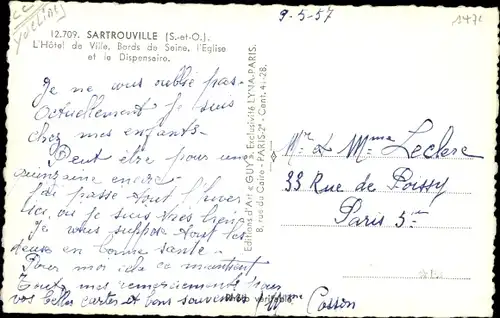 9-5-57
1472
12.709. SARTROUVILLE (S.-et-O.).
L'Hôtel de Ville, Bords de Seine, l'Eglise
et le Dispensaire.
Je ne vous oublie pas.
Actuellement je suis
chez mes enfants.
Peut être pour une
quinzaine encore.
J'ai passé tout l'hiver
ici, ou je suis très bien
Je vous suppose tout les
deux en bonne santé.
Pour moi cela se maintient
Toute mes remerciements pour
vos belles cartes et bons souvenirs
Mme Cosson
Editions d'Art « GUY » Exclusivité LYNA-PARIS.
8, rue du Caire - PARIS-2e - Cent. 41-28.
Mr & Mme Leclerc
33 Rue de Poissy
Paris 5me